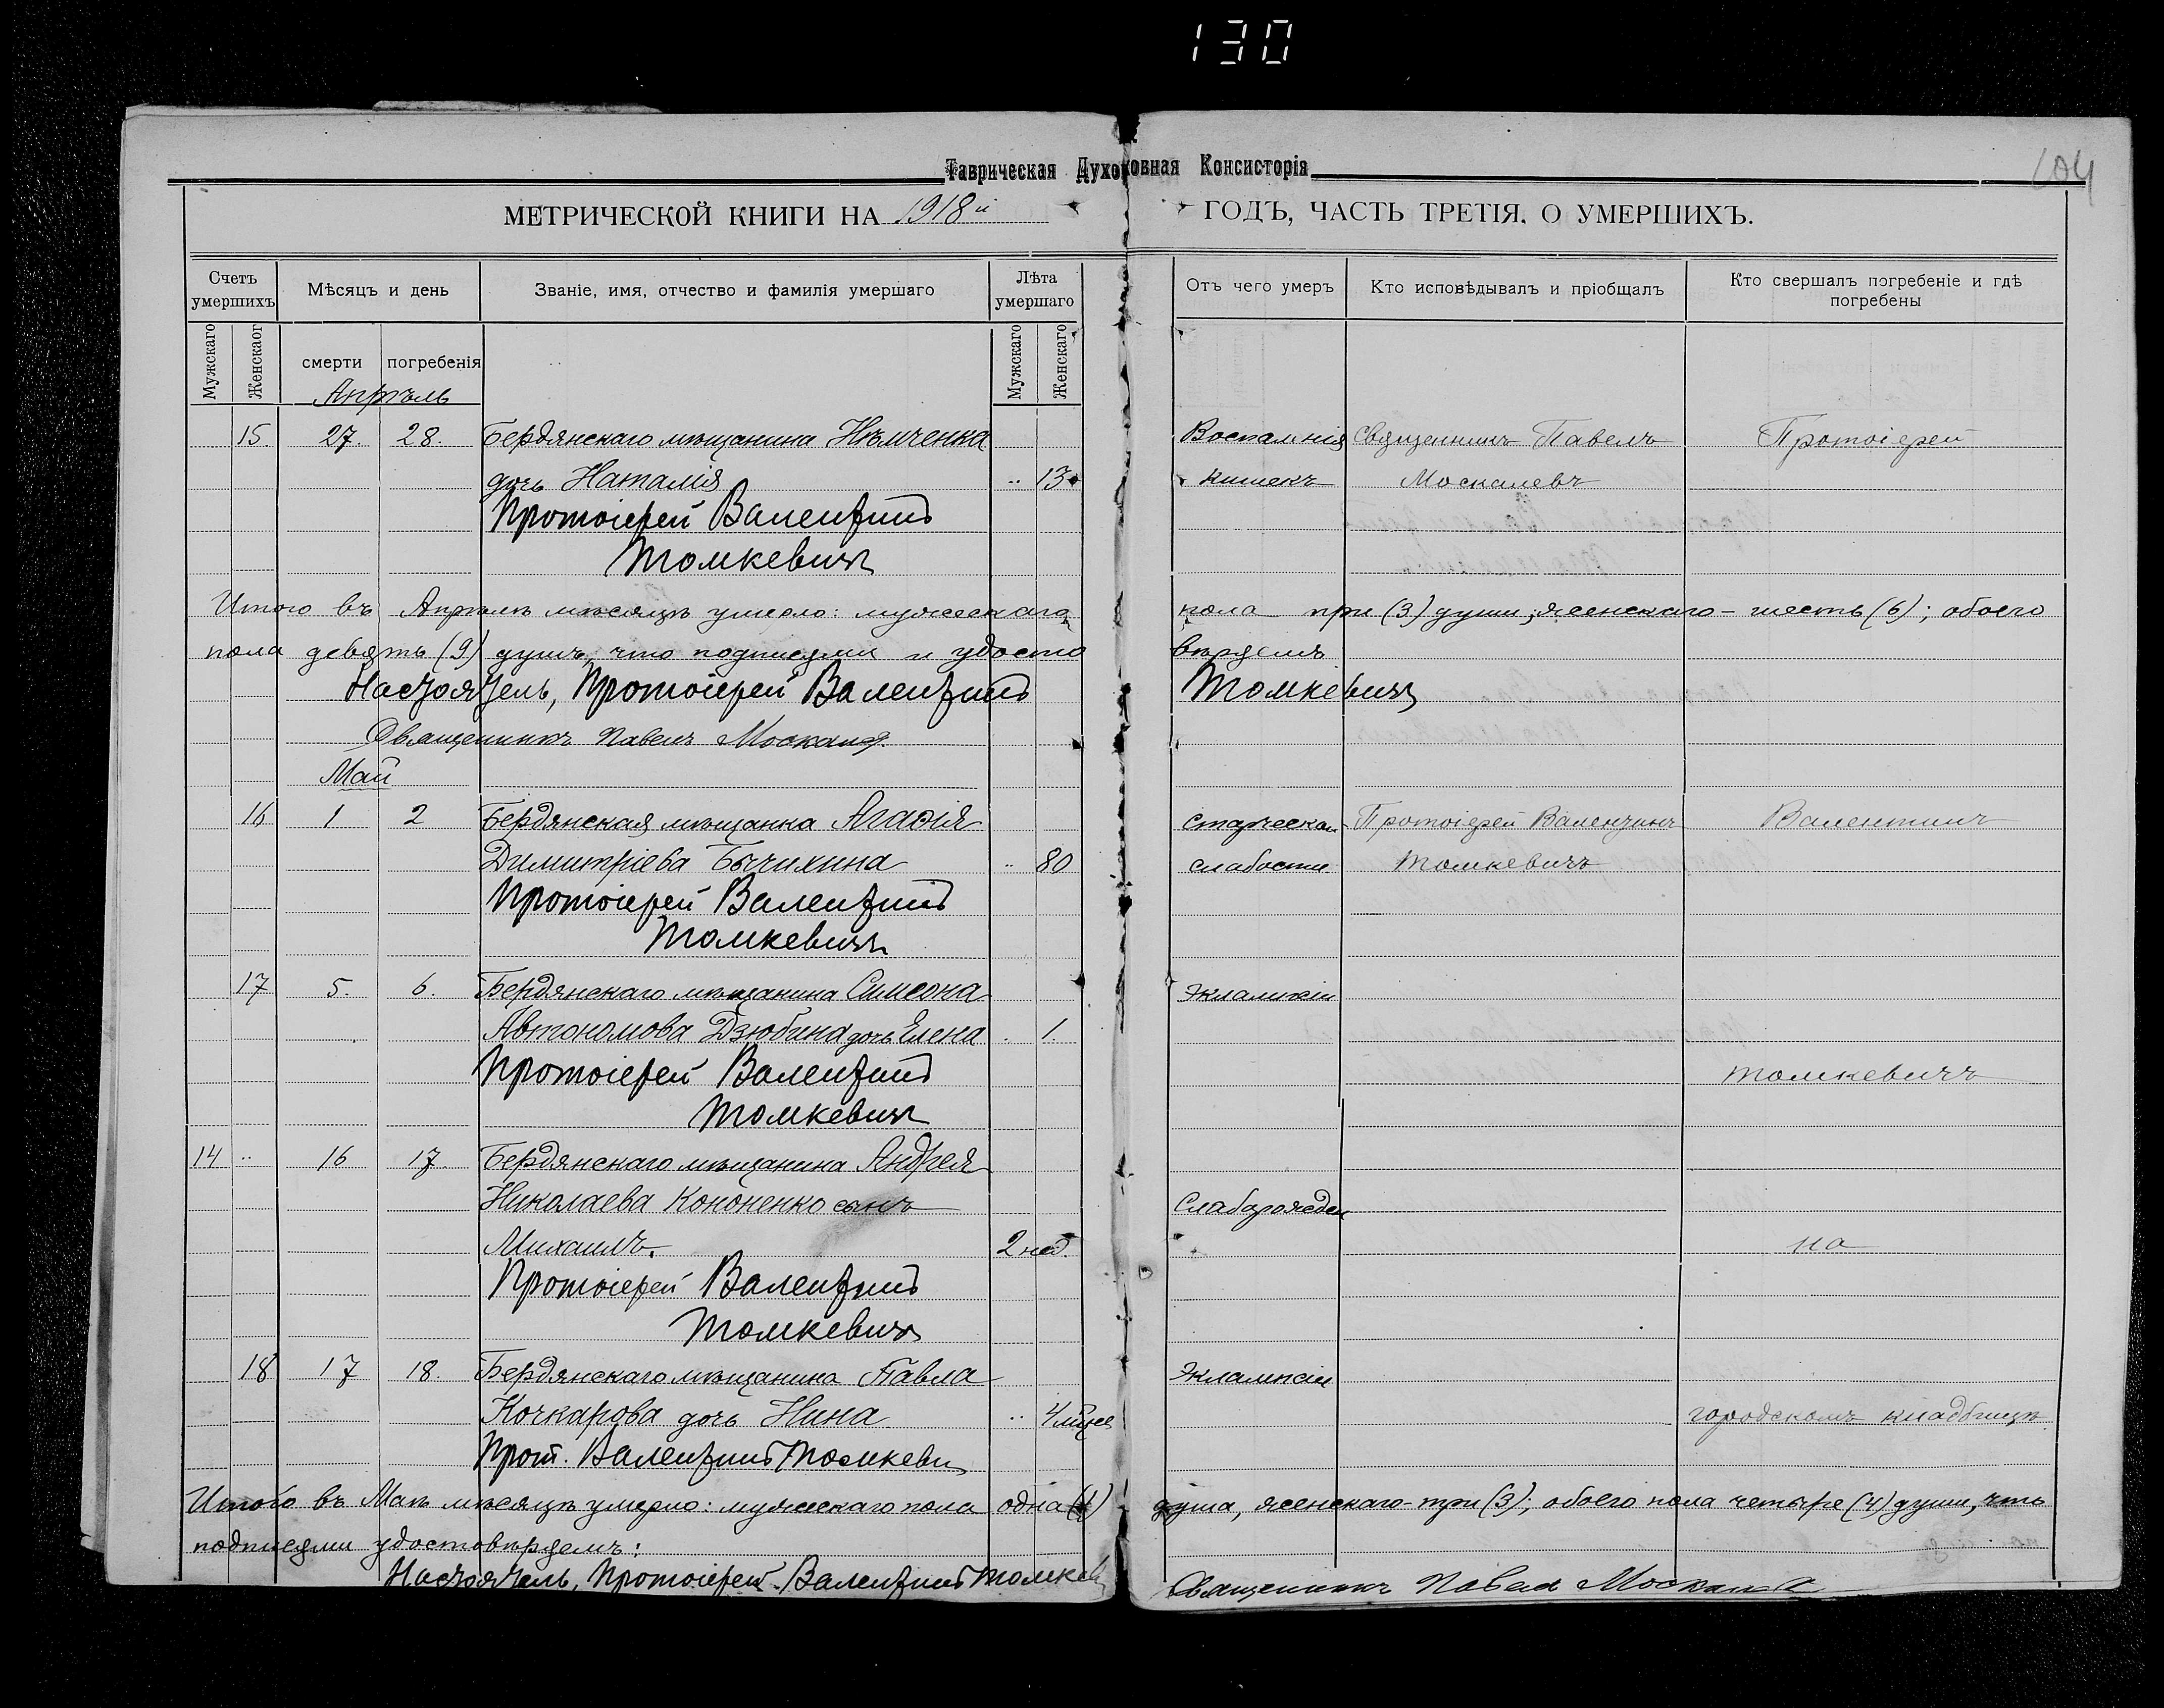 130
Таврическая Духовная Консисторія
104
МЕТРИЧЕСКОЙ КНИГИ НА 1918й ГОДЪ, ЧАСТЬ ТРЕТІЯ. О УМЕРШИХЪ.
Счетъ умершихъ
Мѣсяцъ и день
Званіе, имя, отчество и фамилія умершаго
Лѣта умершаго
Отъ чего умеръ
Кто исповѣдывалъ и пріобщалъ
Кто свершалъ погребеніе и гдѣ погребены
Мужскаго
Женскаог
смерти
погребенія
Мужскаго
Женскаго
Апрѣль
15. 27. 28. Бердянскаго мѣщанина Нѣмченка Воспаленія Священникъ Павелъ Протоіерей
дочь Наталія .. 13 кишекъ Москалевъ
Протоіерей Валентинъ
Томкевичъ
Итого въ Апрѣлѣ мѣсяцѣ умерло: мужескаго пола три (3) души; женскаго – шесть (6); обоего
пола девять (9) душъ, что подписями и удостовѣряемъ
Настоятель, Протоіерей Валентинъ Томкевичъ
Священникъ Павелъ
Май
16 1 2 Бердянская мѣщанка Агафія Старческой Протоіерей Валентинъ Валентинъ
Димитріева Бычихина .. 80 слабости Томкевичъ
Протоіерей Валентинъ
Томкевичъ
17 5. 6. Бердянскаго мѣщанина Симеона Эклампсіи
Автономова Дзюбина дочь Елена . 1.
Протоіерей Валентинъ Томкевичъ
Томкевичъ
14 .. 16 17. Бердянскаго мѣщанина Андрея
Николаева Кононенко сынъ
Михаилъ. 2 нед. на
Протоіерей Валентинъ
Томкевичъ
18 17 18. Бердянскаго мѣщанина Павла Эклампсіи
Кочкарова дочь Нина .. 4 городскомъ кладбищѣ
Прот. Валентинъ Томкеви
Итого въ Маѣ мѣсяцѣ умерло: мужескаго пола одна (1) душа, женскаго – три (3); обоего пола четыре (4) души, что
подписями удостовѣряемъ:
Настоятель, Протоіерей Валентинъ Священникъ Павелъ